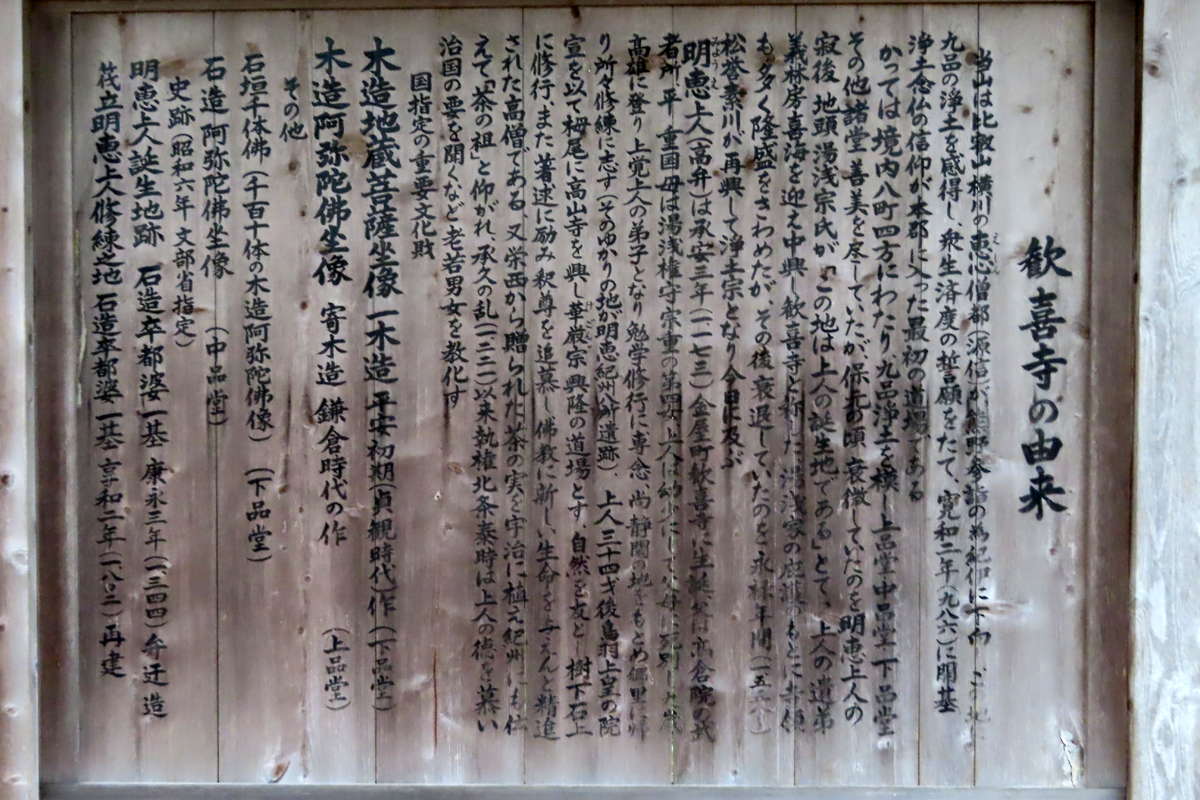 歓喜寺の由来
当山は比叡山横川の恵心僧都(源信)が熊野参詣の為紀伊に下向 この地
九品の浄土を感得し、衆生済度の誓願をたて、寛和二年(九八六)に開基
浄土念仏の信仰が本郡に入った最初の道場である
かつては境内八町四方にわたり九品浄土を模し上品堂中品堂下品堂
その他諸堂善美を尽していたが、保元の頃衰微していたのを明恵上人の
寂後 地頭湯浅宗氏が「この地は上人の誕生地である」とて、上人の遺弟
義林房喜海を迎え中興し歓喜寺と称した 湯浅家の庇護のもとに寺領
も多く隆盛をきわめたが、その後衰退していたのを永禄年間
松誉素川が再興して浄土宗となり今日に及ぶ
明恵上人(高弁)は承安三年(一一七三)金屋町歓喜寺に生誕 父は高倉院の武
者所平重国母は湯浅権守宗重の第四女 上人は幼少にして父母に死別し九歳
高雄に登り上覚上人の弟子となり勉学修行に専念、尚静閑の地をもとめ郷里に帰
り所々修練に志す(そのゆかりの地が明恵紀州八所遺跡) 上人三十四才後鳥羽上皇の院
宣を以て栂尾に高山寺を興し華厳宗興隆の道場とす、自然を友とし樹下石上
に修行、また著述に励み釈尊を追慕し佛教に新しい生命を与えんと精進
された高僧である、又栄西から贈られた茶の実を宇治に植え紀州にも伝
えて「茶の祖」と仰がれ、承久の乱(一二二一)以来執権北条泰時は上人の徳を慕い
治国の要を聞くなど老若男女を教化す
国指定の重要文化財
木造地蔵菩薩坐像 一木造 平安初期(貞観時代)作(下品堂)
木造阿弥陀佛坐像 寄木造 鎌倉時代の作 (上品堂)
その他
石垣千体佛(千百十体の木造阿弥陀佛像) (下品堂)
石造阿弥陀佛坐像 (中品堂)
史跡(昭和六年文部省指定)
明恵上人誕生地跡 石造卒都婆一基 康永三年(一三四四)弁迂造
筏立明恵上人修練之地 石造卒都婆一基 享和二年(一八〇二)再建